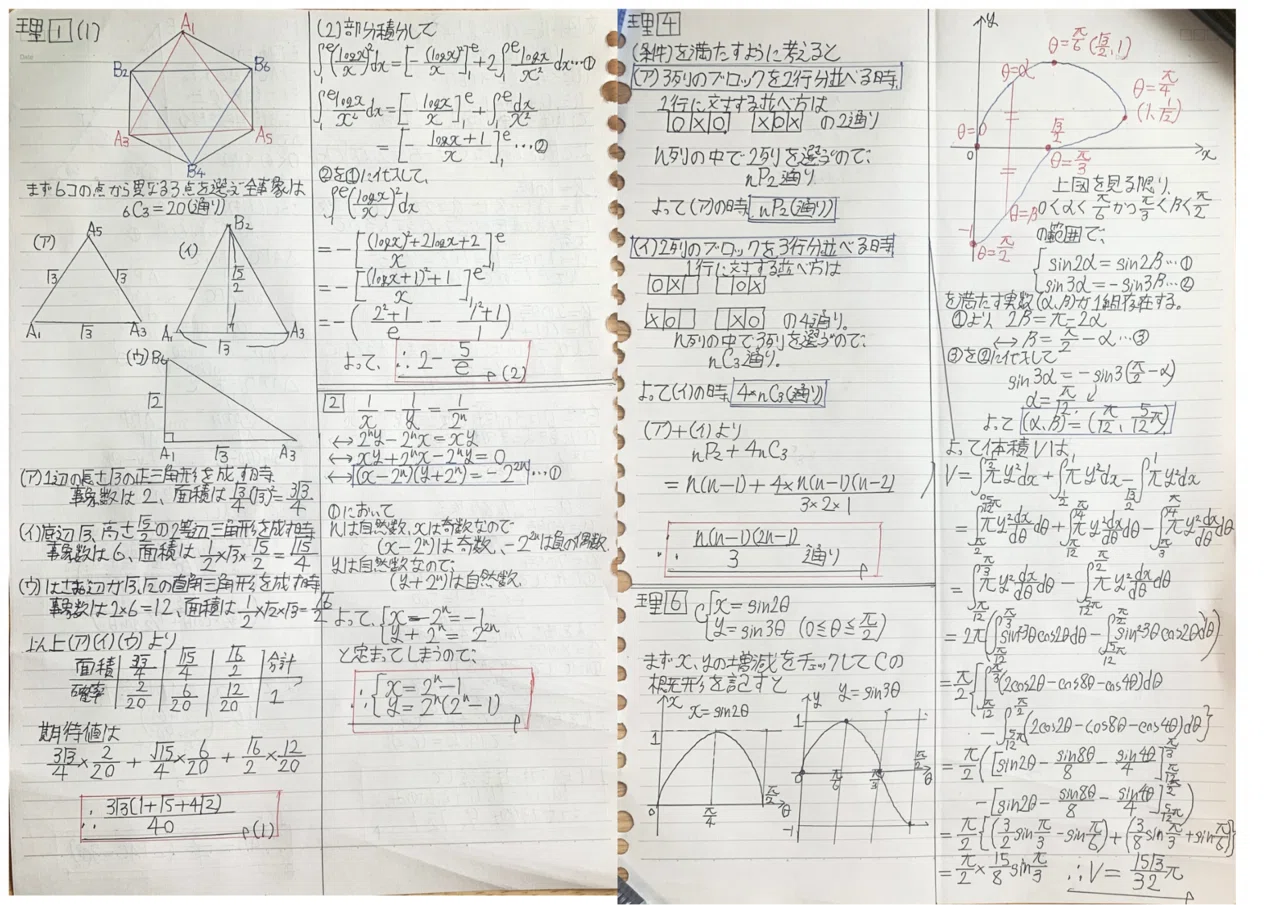 理1(1)
A1
B2
B6
A3
A5
B4
まず6コの点から異なる3点を選ぶ全事象は
6C3=20(通り)
(ア)
A5
√3
√3
A1
√3
A3
(イ)
B2
√5/2
A1
√3
A3
(ウ)
B6
√2
A1
√3
A3
(ア)1辺の長さ√3の正三角形を成す時
事象数は2、面積は√3/4(√3)²=3√3/4
(イ)底辺√3,高さ√5/2の2等辺三角形を成す時
事象数は6、面積は1/2×√3×√5/2=√15/4
(ウ)はさむ辺が√3,√2の直角三角形を成す時
事象数は2×6=12、面積は1/2×√2×√3=√6/2
以上(ア)(イ)(ウ)より
面積 3√3/4 √15/4 √6/2 合計
確率 2/20 6/20 12/20 1
期待値は
3√3/4×2/20+√15/4×6/20+√6/2×12/20
∴ 3√3(1+√5+4√2)/40
(1)
(2)部分積分して
∫₁^e(logx/x)²dx=[-(logx)²/x]₁^e+2∫₁^e logx/x² dx…①
∫₁^e logx/x² dx=[-logx/x]₁^e+∫₁^e dx/x²
=[-(logx+1)/x]₁^e…②
②を①に代入して、
∫₁^e(logx/x)²dx
=-[((logx)²+2logx+2)/x]₁^e
=-[((logx+1)²+1)/x]₁^e
=-((2²+1)/e-(1²+1)/1)
よって、∴2-5/e
(2)
2 1/x-1/y=1/2ⁿ
↔2ⁿy-2ⁿx=xy
↔xy+2ⁿx-2ⁿy=0
↔(x-2ⁿ)(y+2ⁿ)=-2²ⁿ…①
①において
nは自然数,xは奇数なので
(x-2ⁿ)は奇数、-2²ⁿは負の偶数.
yは自然数なので;
(y+2ⁿ)は自然数.
よって、{x-2ⁿ=-1
y+2ⁿ=2²ⁿ
と定まってしまうので、
∴{x=2ⁿ-1
y=2ⁿ(2ⁿ-1)
理4
(条件)を満たすように考えると
(ア)3列のブロックを2行分並べる時
1行に対する並べ方は
○×○ ×○× の2通り
n列の中で2列を選ぶので;
nP2通り.
よって(ア)の時、nP2(通り)
(イ)2列のブロックを3行分並べる時
1行に対する並べ方は
○× ○×
×○ ×○ の4通り.
n列の中で3列を選ぶので;
nC3通り.
よって(イ)の時、4×nC3(通り)
(ア)+(イ)より
nP2+4nC3
=n(n-1)+4×n(n-1)(n-2)/3×2×1
∴ n(n-1)(2n-1)/3 通り
理6 C{x=sin2θ
y=sin3θ (0≦θ≦π/2)
まずx,yの増減をチェックしてCの
概形を記すと
x
x=sin2θ
1
0
π/4
π/2
θ
y
y=sin3θ
1
0
π/6
π/3
π/2
θ
-1
y
θ=π/6(√3/2,1)
θ=α
θ=π/4
(1,1/√2)
θ=0
√3/2
0
x
θ=π/3
θ=β
-1
θ=π/2
上図を見る限り,
0<α<π/6かつπ/3<β<π/2
の範囲で、
{sin2α=sin2β…①
sin3α=-sin3β…②
を満たす実数(α,β)が1組存在する.
①より、2β=π-2α
↔β=π/2-α…③
③を②に代入して
sin3α=-sin3(π/2-α)
α=π/12
よって(α,β)=(π/12,5/12π)
よって体積Vは、
=2π(∫sin²3θcos2θdθ-∫sin²3θcos2θdθ)
=π/2{∫(2cos2θ-cos8θ-cos4θ)dθ
-∫(2cos2θ-cos8θ-cos4θ)dθ}
=π/2([sin2θ-sin8θ/8-sin4θ/4]
-[sin2θ-sin8θ/8-sin4θ/4])
=π/2{(3/2sinπ/3-sinπ/6)+(3/8sinπ/3+sinπ/6)}
=π/2×15/8sinπ/3 ∴V=15√3/32π